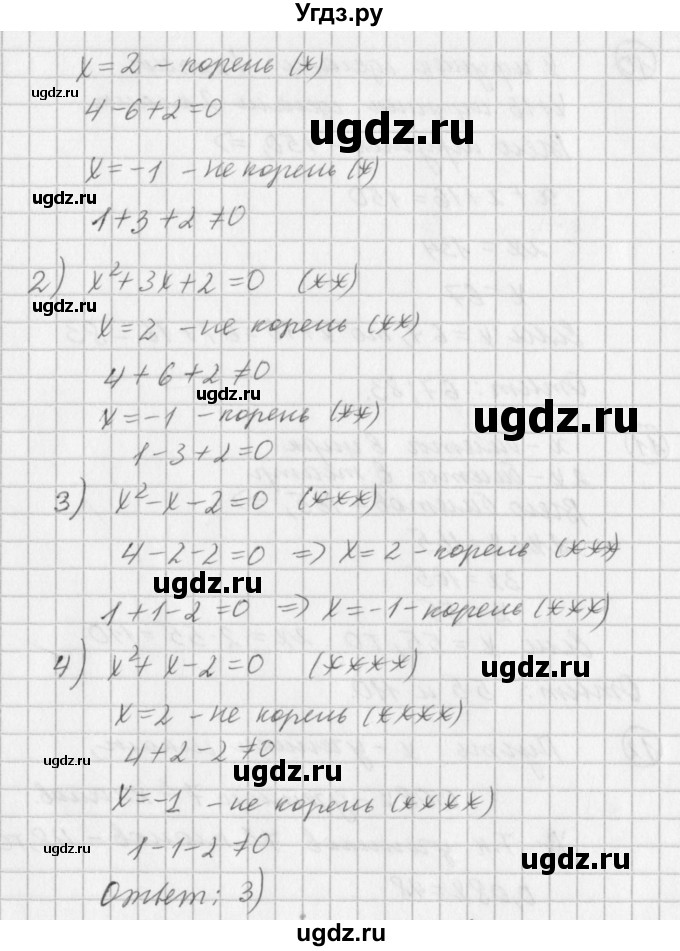 Угдз.ру
x = 2 - корень (*)
ugdz.ru
4 - 6 + 2 = 0
ugdz.ru
x = -1 - не корень (*)
ugdz.ru
1 + 3 + 2 ≠ 0
2) x² + 3x + 2 = 0 (**)
ugdz.ru
x = 2 - не корень (**)
4 + 6 + 2 ≠ 0
ugdz.ru
x = -1 - корень (**)
ugdz.ru
1 - 3 + 2 = 0
3) x² - x - 2 = 0 (***)
4 - 2 - 2 = 0 => x = 2 - корень (***)
ugdz.ru
1 + 1 - 2 = 0 => x = -1 - корень (***)
4) x² + x - 2 = 0 (****)
ugdz.ru
x = 2 - не корень (****)
4 + 2 - 2 ≠ 0
ugdz.ru
ugdz.ru
x = -1 - не корень (****)
1 - 1 - 2 ≠ 0
ugdz.ru
ugdz.ru
Ответ: 3)
ugdz.ru